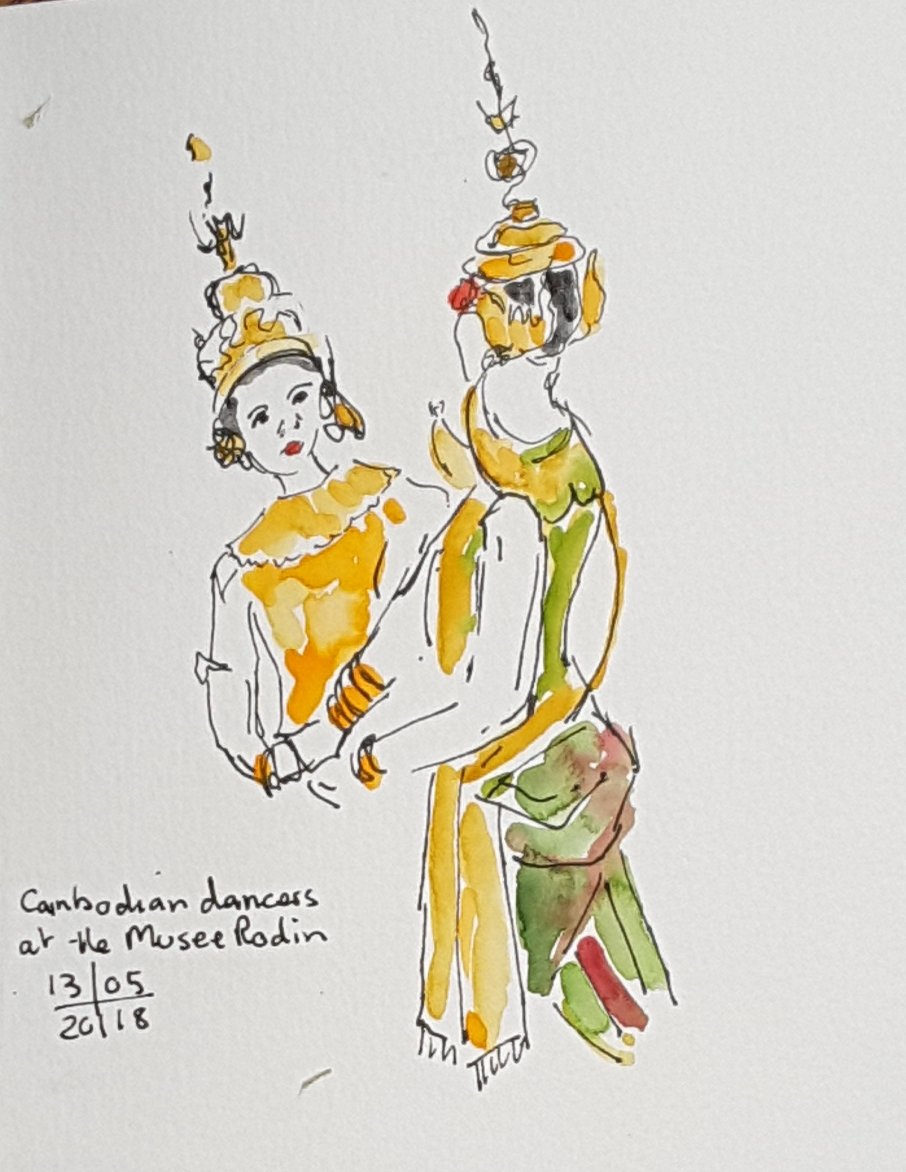 Cambodian dancers
at the Musee Rodin
13/05
2018